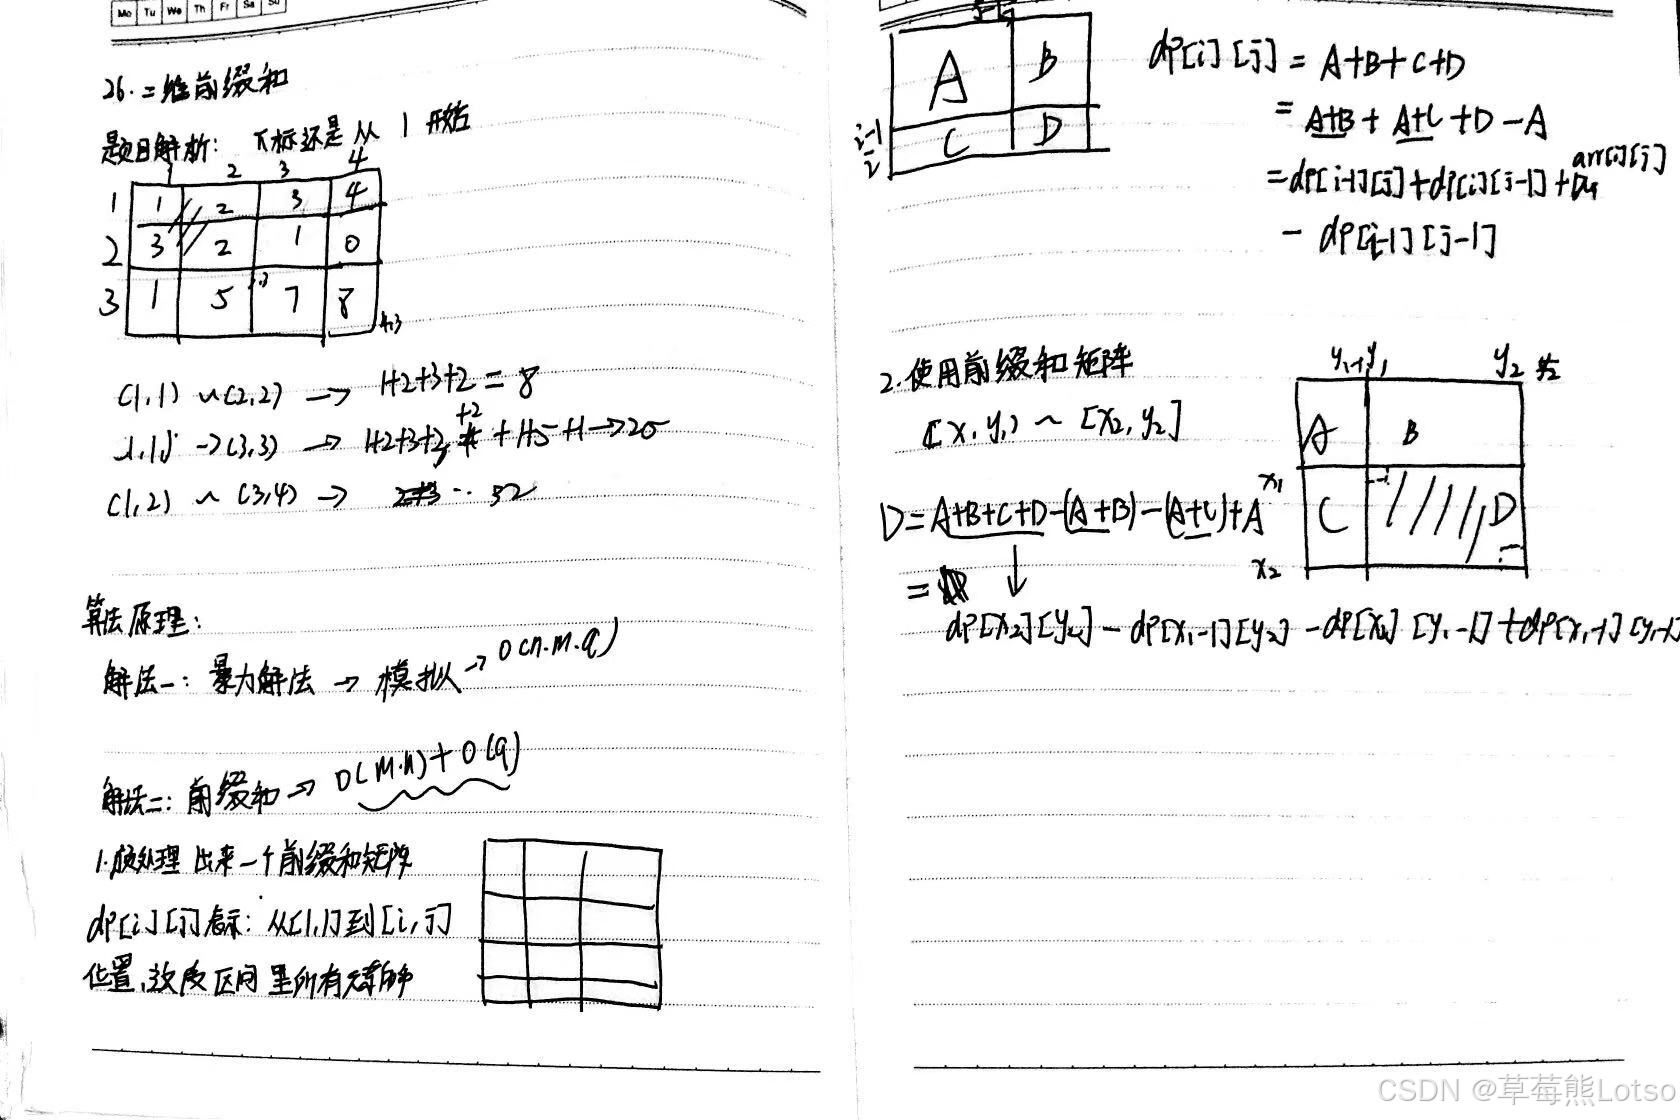 Mo Tu We Th Fr Sa Su
26. 二维前缀和
题目解析: 下标还是从 1 开始
1 2 3 4
1 1 2 3 4
2 3 2 1 0
3 1 5 7 8
4,3
(1,1) ~ (2,2) → 1+2+3+2 = 8
1,1) → (3,3) → 1+2+3+2 +2 + 1+5+1 → 25
(1,2) ~ (3,4) → 32
算法原理:
解法一: 暴力解法 → 模拟 → O(n.m.q)
解法二: 前缀和 → O(m.n)+O(q)
1.预处理出来一个前缀和矩阵
dp[i][j]表示: 从[1,1]到[i,j]
位置,这段区间里所有元素的和
j-1 j
A B
i-1
i
C D
dp[i][j] = A+B+C+D
= A+B + A+C + D - A
arr[i][j]
= dp[i-1][j]+dp[i][j-1]+
- dp[i-1][j-1]
2.使用前缀和矩阵
[x1,y1) ~ [x2,y2]
y1-1 y1 y2
A B
x1
C D
x2
D=A+B+C+D-(A+B)-(A+C)+A
=
dp[x2][y2]-dp[x1-1][y2]-dp[x2][y1-1]+dp[x1-1][y1-1]
CSDN @草莓熊Lotso